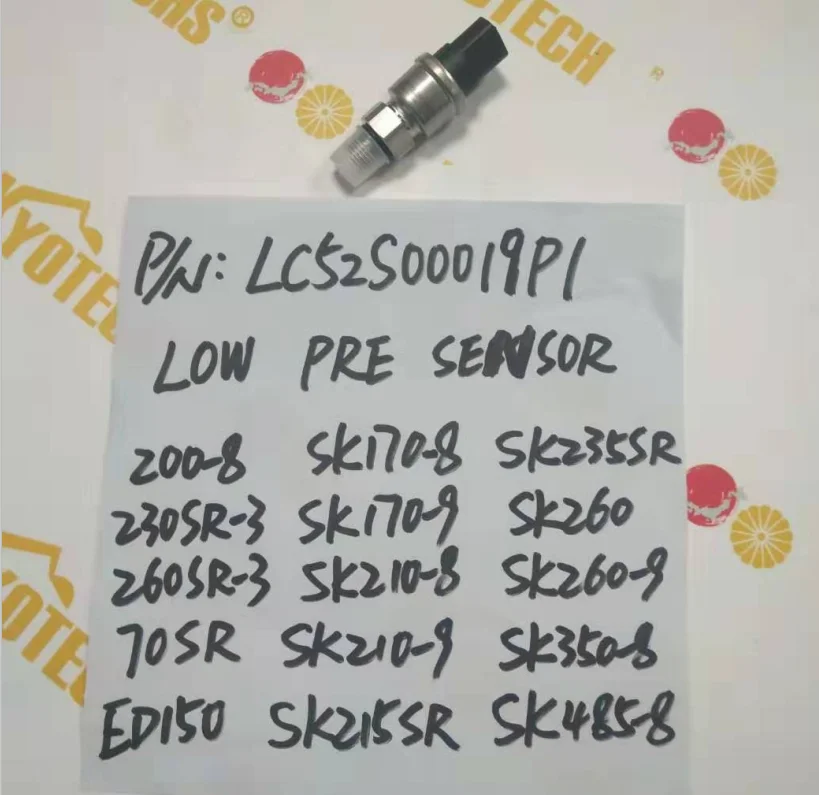 CHS®
YOTECH
®
P/N: LC52S00019P1
KYOTECH
LOW PRE SENSOR
200-8 SK170-8 SK235SR
230SR-3 SK170-9 SK260
260SR-3 SK210-8 SK260-9
70SR SK210-9 SK350-8
OTE
ED150 SK215SR SK485-8